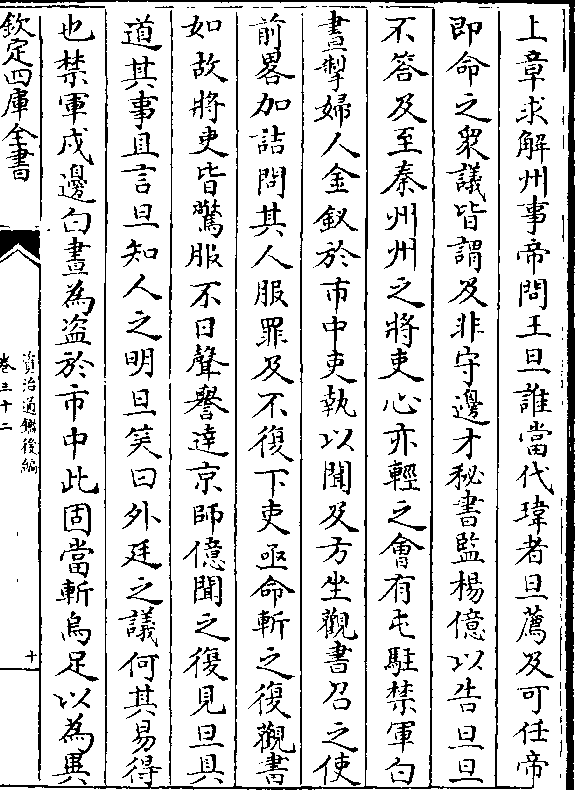 上章求解州事帝問王旦誰當代瑋者旦薦及可任帝
即命之衆議皆謂及非守邊才秘書監楊億以告旦旦
不答及至秦州州之將吏心亦輕之會有屯駐禁軍白
晝掣婦人金釵於市中吏執以聞及方坐觀書召之使
前畧加詰問其人服罪及不復下吏亟命斬之復觀書
如故將吏皆驚服不日聲譽達京師億聞之復見旦具
道其事且言旦知人之明旦笑曰外廷之議何其易得
也禁軍戍邊白晝為盗於市中此固當斬烏足以為異
欽定四庫全書
資治通鑑後編
卷三十二
十